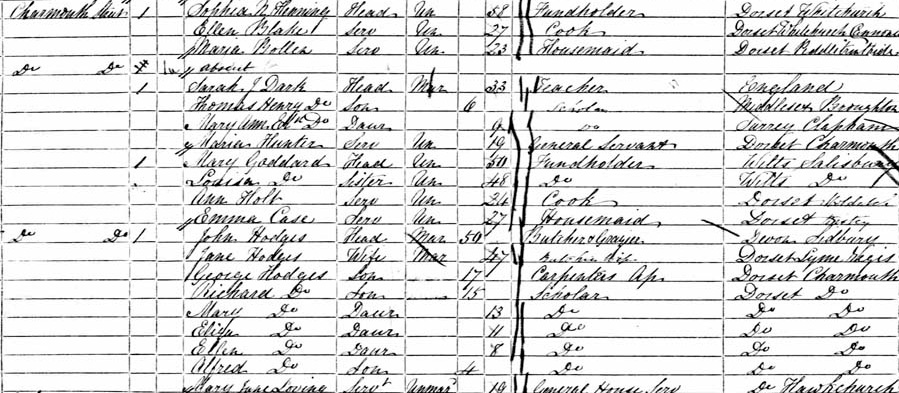 Charmouth 1 Sophia Henning Head Un 58 Fundholder Dorset Whitchurch
Ellen Blake Serv Un 27 Cook Dorset Whitchurch
Maria Bollen Serv Un 23 Housemaid Dorset
Do Do absent
1 Sarah J Dark Head Mar 33 Teacher England
Thomas Henry Do Son 6 Scholar Middlesex
Mary Ann Do Daur 9 Do Surrey Clapham
Maria Hunter Serv Un 19 General Servant Dorset Charmouth
1 Mary Goddard Head Un 50 Fundholder Wilts Salisbury
Louisa Do Sister Un 48 Do Wilts Do
Ann Holt Serv Un 24 Cook Dorset
Emma Case Serv Un 27 Housemaid Dorset
Do Do 1 John Hodges Head Mar 50 Butcher & Grazier Devon Sidbury
Jane Hodges Wife Mar 47 Dorset Lyme Regis
George Hodges Son 17 Carpenters Ap Dorset Charmouth
Richard Do Son 15 Scholar Dorset Do
Mary Do Daur 13 Do Do Do
Eliza Do Daur 11 Do Do Do
Ellen Do Daur 8 Do Do Do
Alfred Do Son 4 Do Do Do
Mary Jane Loving Servt Unmar 19 General House Serv Do Hawkchurch